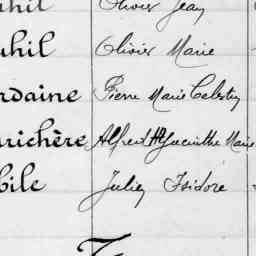 uhil Olivier Jean
uhil Olivier Marie
rdaine Pierre Marie Celestin
urichère Alfred Hyacinthe Marie
bile Julien Isidore